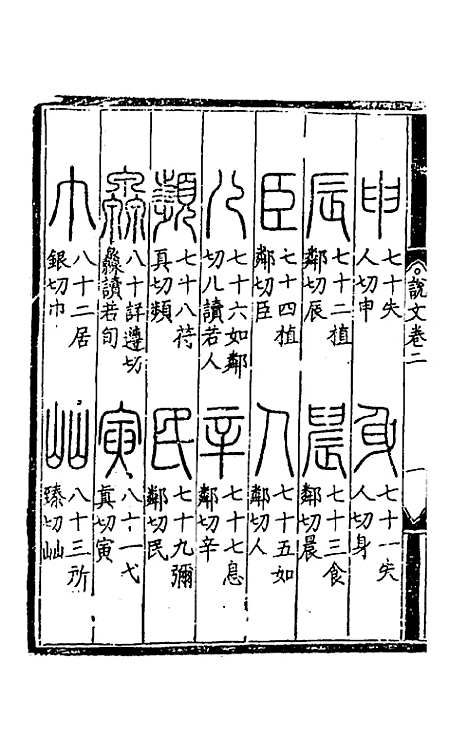 說文卷二
申
七十失
人切申
身
七十一失
人切身
辰
七十二植
鄰切辰
晨
七十三食
鄰切晨
臣
七十四植
鄰切臣
人
七十五如
鄰切人
儿
七十六如鄰
切儿讀若人
辛
七十七息
鄰切辛
頻
七十八符
真切頻
民
七十九彌
鄰切民
灥
八十詳遵切
灥讀若旬
寅
八十一弋
真切寅
巾
八十二居
銀切巾
屾
八十三所
臻切屾